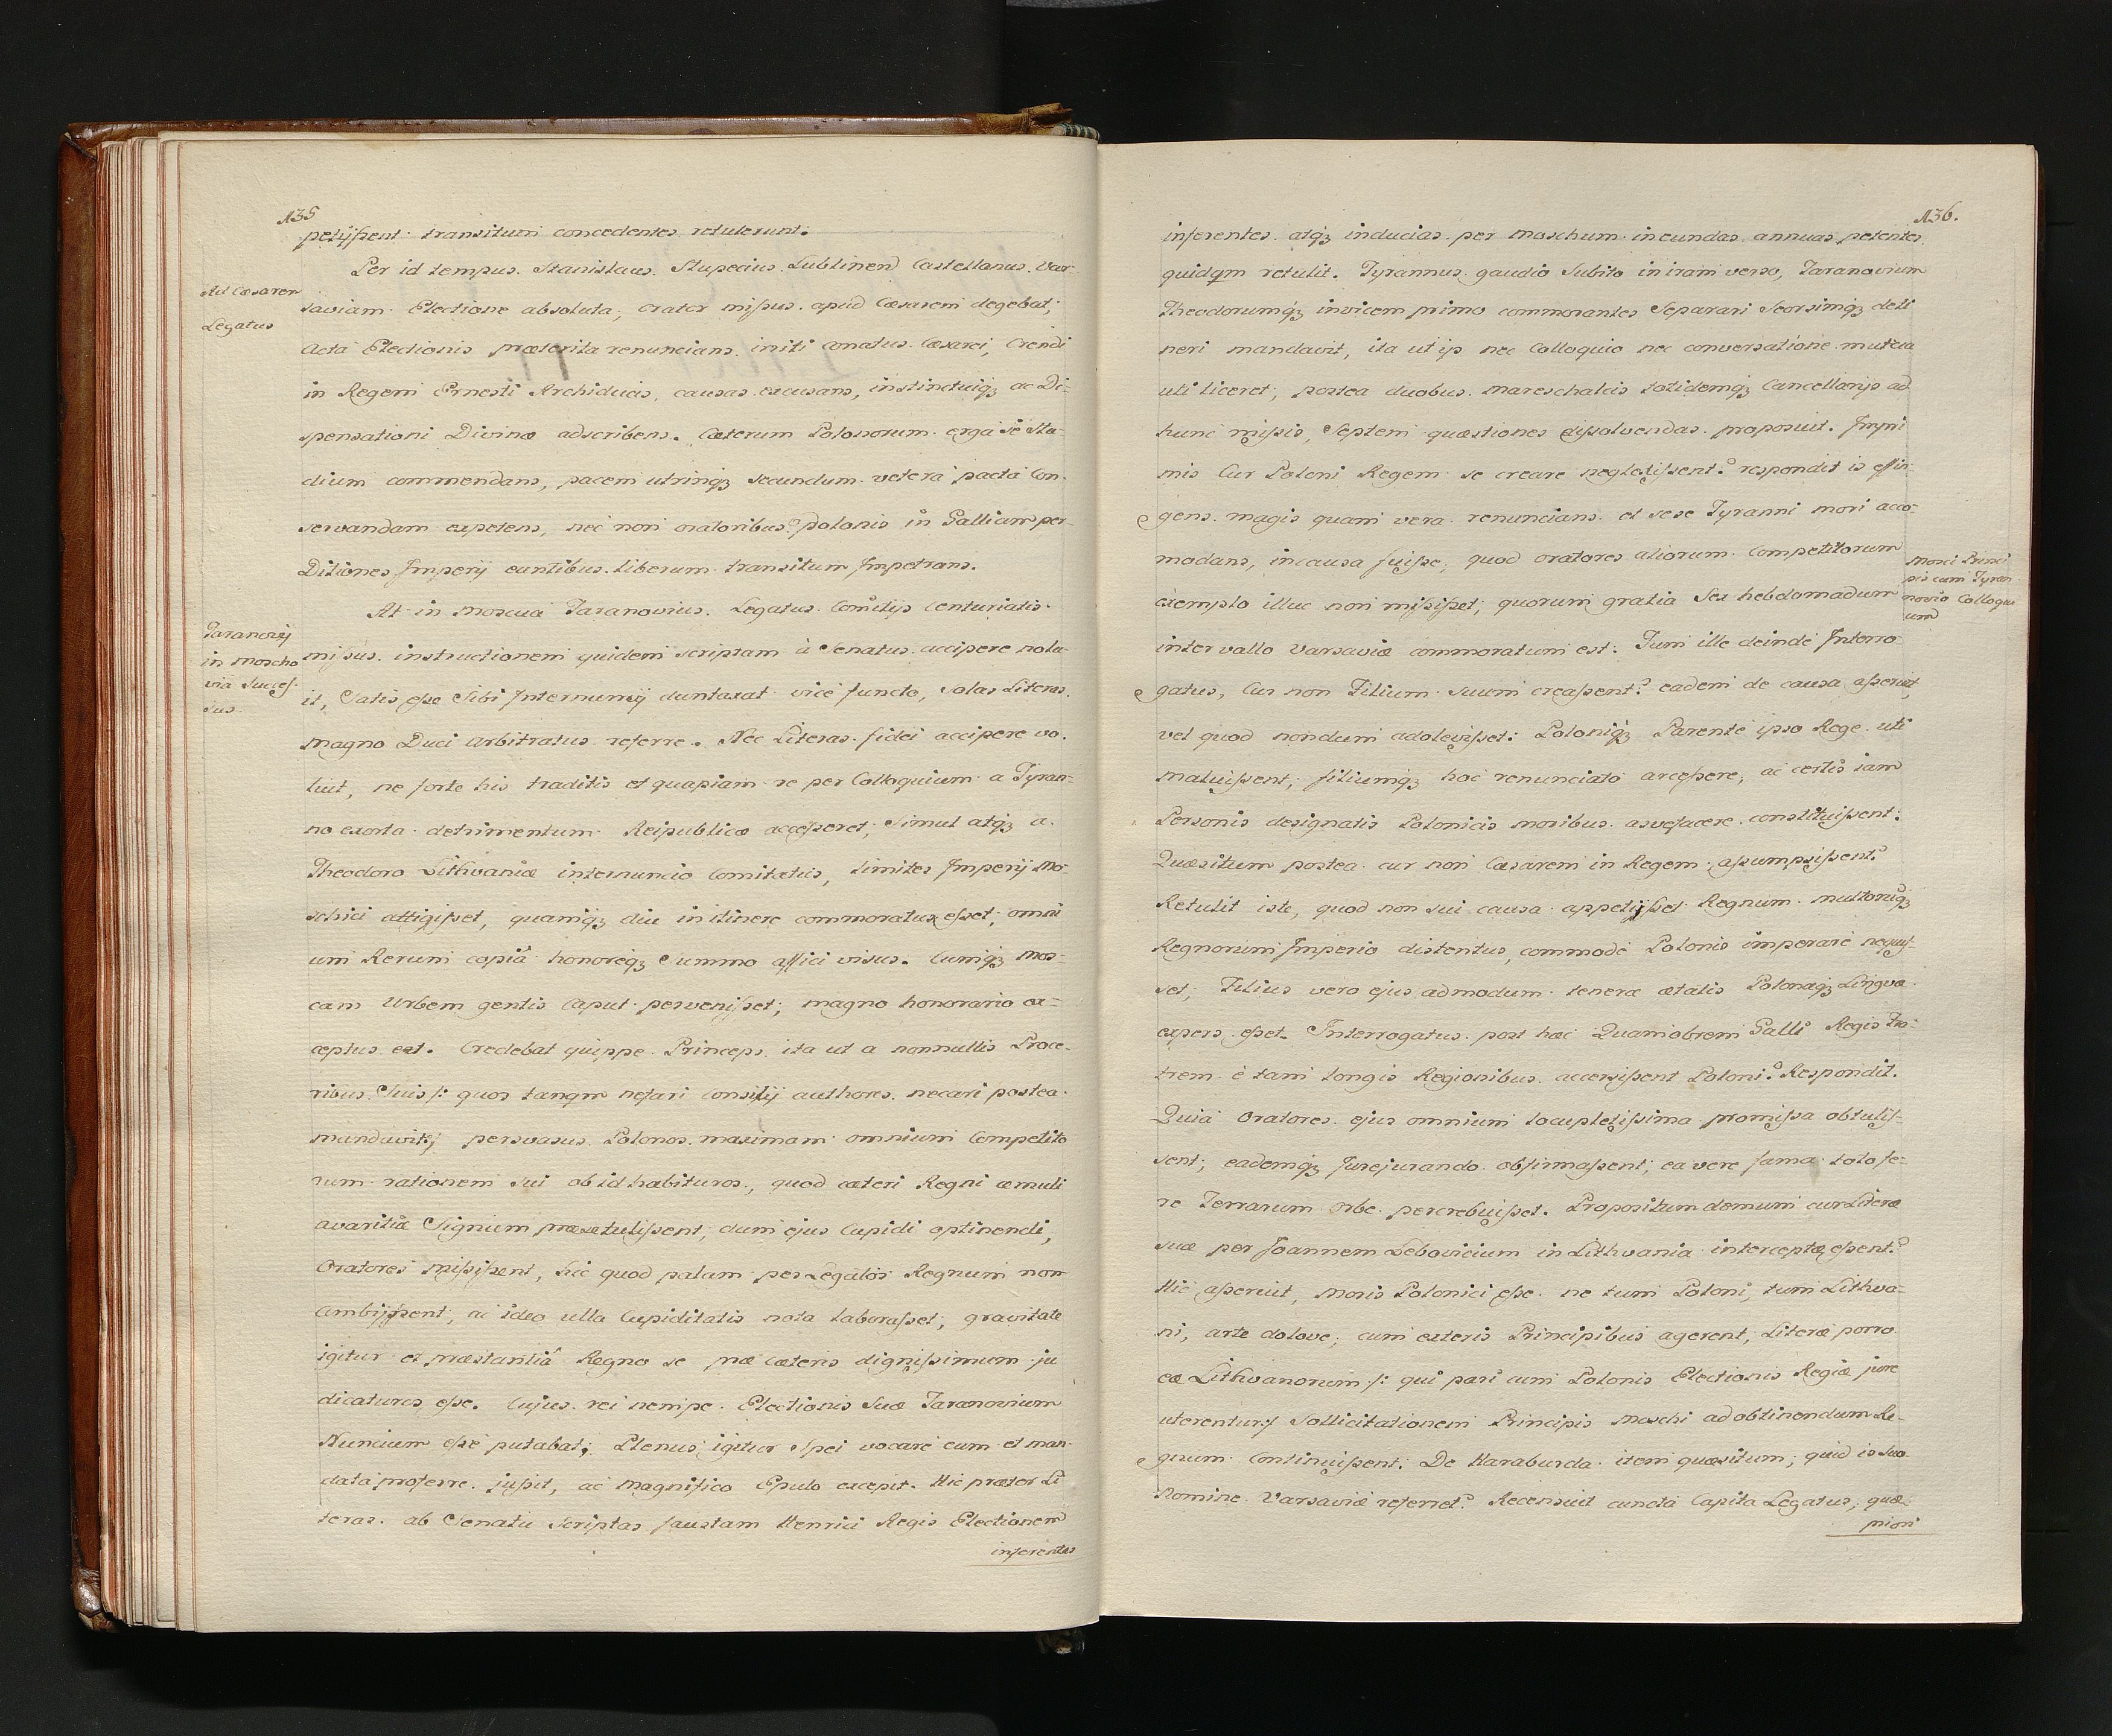 135
petijſsent transitum concedentes retulerunt.
Per id tempus Stanislaus Slupecius Lublinen Castellanus Var-
Ad Cæsarem
Legatus
saviam Electione absoluta, orator miſsus apud Cæsarem degebat;
acta Electionis præterita renuncians initi conatus Cæsarei, Creandi
in Regem Ernesti Archiducis, causas excusans, instinctuiqȝ ac Di-
spensationi Divinæ adscribens. Cæterum Polonorum erga se Stu-
dium commendans, pacem utrinqȝ secundum vetera pacta Con-
servandam expetens, nec non oratoribus polonis in Galliam per
Ditiones Imperij euntibus liberum transitum Impetrans.
At in Moscua Taranovius Legatus Comitijs Centuriatis
Taranovij
in Moscho
via Succeſ-
sus.
miſsus instructionem quidem scriptam à Senatus accipere nolu-
it, Satis eſse Sibi Internuncij duntaxat vice functo, solas Literas
Magno Duci arbitratus referre. Nec Literas fidei accipere vo-
luit, ne forte his traditis et quapiam re per Colloquium a Tyran-
no exorta detrimentum Reipublicæ acceſseret; Simul atqȝ a
Theodoro Lithvaniæ internuncio Comitatus, limites Imperij Mo-
schici attigiſset, quamqȝ diu in itinere commoratus eſset, omni
um Rerum copiâ honoreqȝ summo affici visus. Cumqȝ Mos-
cam Urbem gentis Caput perveniſset; magno honorario ex-
ceptus est. Credebat quippe Princeps ita ut a nonnullis Proce-
ribus Suis /: quos tanqm nefari consilij authores necari postea
mandavit :/ persvasus Polonos maximam omnium Competito
rum rationem sui ob id habituros, quod cæteri Regni æmuli
avaritiæ Signum præsetuliſsent, dum ejus Cupidi optinendi,
Oratores misiſsent, hic quod palam per Legatos Regnum non
ambijſsent, ac ideo ulla Cupiditatis nota laboraſset, gravitate
igitur et præstantiâ Regno se præ cæteris digniſsimum ju
dicaturos eſse. Cujus rei nempe Electionis Suæ Taranovium
Nuncium eſse putabat; Plenus igitur spei vocare eum et man-
data proferre juſsit, ac magnifico Epulo excepit. Hic præter Li
teras ab Senatu Scriptas faustam Henrici Regis Electionem
inferentes
136.
inferentes atqȝ inducias per Moschum ineundas annuas petentes
quidqm retulit. Tyrannus gaudio Subito in iram verso, Taranovium
Theodorumqȝ invicem primo commorantes Separari Seorsimqȝ deti
neri mandavit, ita ut ijs nec Colloquio nec conversatione mutua
uti liceret; postea duobus Mareschalcis totidemqȝ Cancellarijs ad
hunc miſsis, Septem quæstiones diſsolvendas proposuit. Impri
mis Cur Poloni Regem se creare neglexiſsent? respondit is effin-
gens magis quam vera renuncians et sese Tyranni mori acco-
modans, in causa fuiſse, quod oratores aliorum Competitorum
Mosci Princi
pis cum Tyran
novio Colloqui
um
exemplo illuc non misiſset; quorum gratia Sex hebdomadum
intervallo Varsaviæ commoratum est. Tum ille deinde Interro-
gatus, Cur non Filium suum creaſsent? eadem de causa aſseruit,
vel quod nondum adoleviſset: Poloniqȝ Parente ipso Rege uti
maluiſsent, filiumqȝ hoc renunciato arceſsere, ac certis iam
Personis designatis Polonicis moribus asvefacere constituiſsent:
Quæsitum postea cur non Cæsarem in Regem aſsumpsiſsent?
Retulit iste, quod non sui causa appetijſset Regnum multoruqȝ
Regnorum Imperio distentus, commode Polonis imperare nequiſ-
set; Filius vero ejus admodum teneræ ætatis Polonæqȝ Lingvæ
expers eſset. Interrogatus post hæc Quamobrem Galli Regis fra-
trem è tam longis Regionibus accersiſsent Poloni? Respondit.
Quia Oratores ejus omnium locupletiſsima promiſsa obtuliſ-
sent; eademqȝ Jurejurando obfirmaſsent; ea vere fama toto fe-
re Terrarum orbe percrebuiſset. Propositum demum cur Literæ
suæ per Joannem Lebovicium in Lithvania interceptæ eſsent?
Hic aſseruit, moris Polonici eſse ne tum Poloni, tum Lithva-
ni, arte dolove, cum exteris Principibus agerent, Literæ porro
eæ Lithvanorum /: qui pari cum Polonis Electionis Regiæ jure
uterentur :/ Sollicitationem Principis Moschi ad obtinendum Re-
gnum Continuiſsent. De Haraburda item quæsitum; quid is suo
Nomine Varsaviæ referret? Recensuit cuncta Capita Legatus, quæ
priori